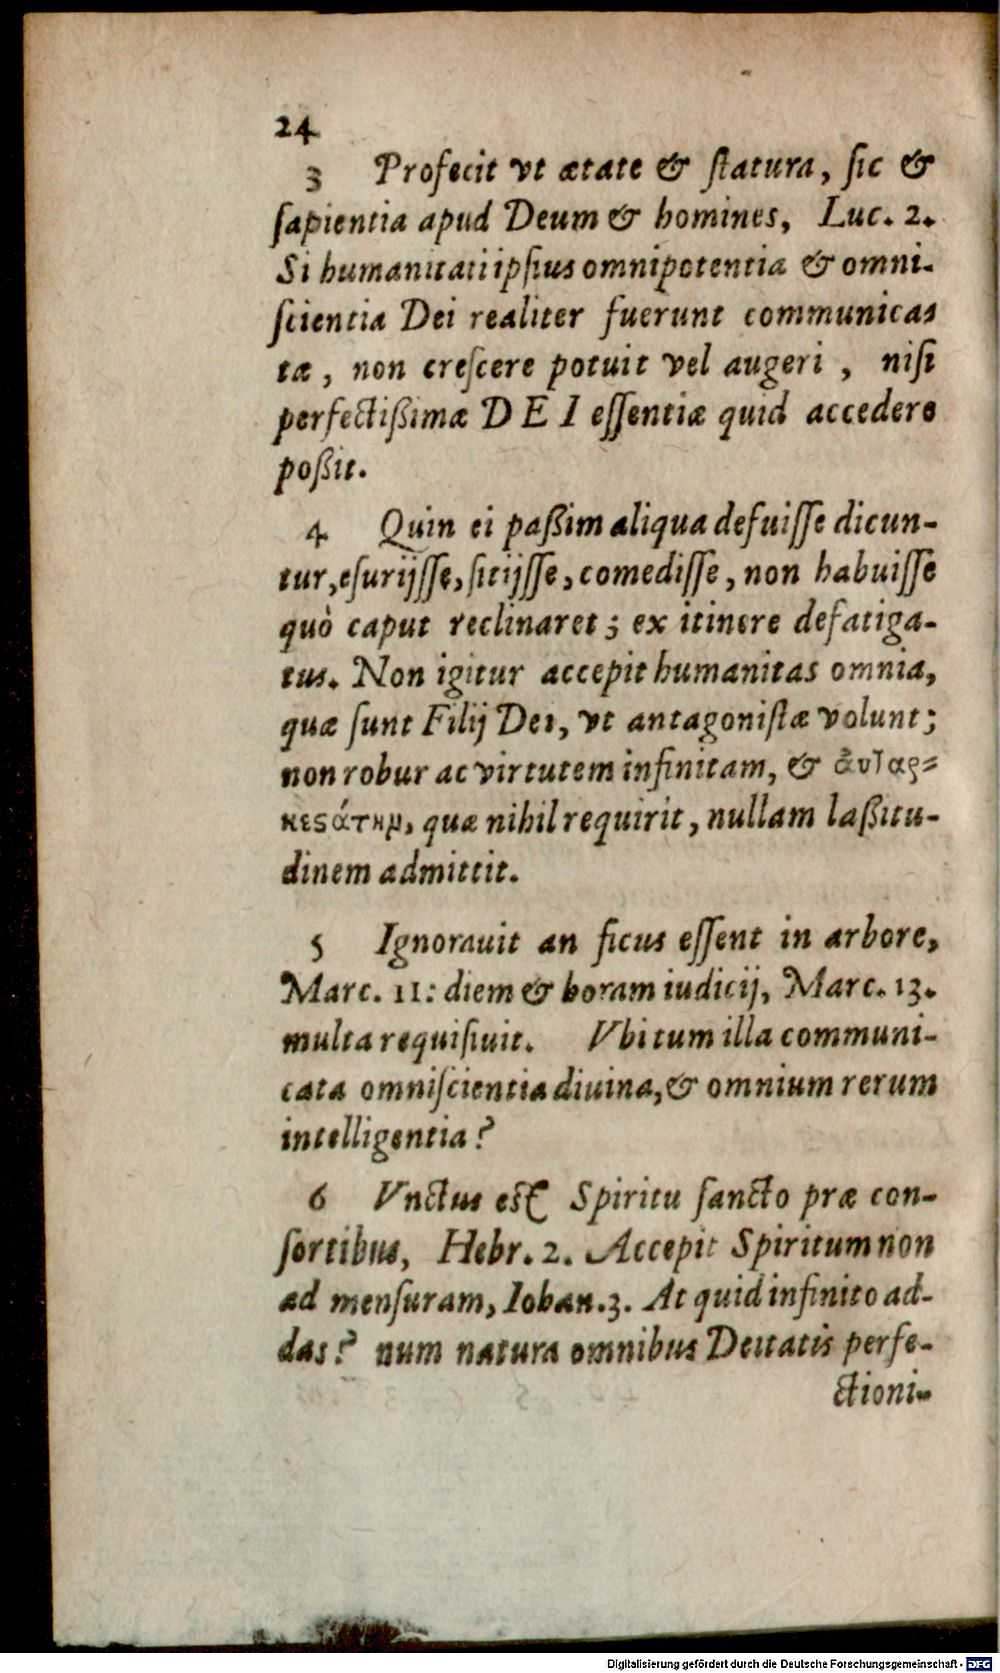 24
3 Profecit vt ætate & ſtatura, ſic &
ſapientia apud Deum & homines, Luc. 2.
Si humanitati ipſius omnipotentia & omni-
ſcientia Dei realiter fuerunt communicas
tæ, non creſcere potuit vel augeri, niſi
perfectißimæ DEI eſſentiæ quid accedere
poßit.
4 Quin ei paßim aliqua defuiſſe dicun-
tur, eſurijſſe, ſitijſſe, comediſſe, non habuiſſe
quò caput reclinaret; ex itinere defatiga-
tus. Non igitur accepit humanitas omnia,
quæ ſunt Filij Dei, vt antagoniſtæ volunt;
non robur ac virtutem infinitam, &
quæ nihil requirit, nullam laßitu-
dinem admittit.
5 Ignorauit an ficus eſſent in arbore,
Marc. 11: diem & horam iudicij, Marc. 13.
multa requiſiuit. Vbi tum illa communi-
cata omniſcientia diuina, & omnium rerum
intelligentia?
6 Vnctus eſt Spiritu ſancto præ con-
ſortibus, Hebr. 2. Accepit Spiritum non
ad menſuram, Iohan. 3. At quid infinito ad-
das? num natura omnibus Deitatis perfe-
ctioni-
Digitalisierung gefördert durch die Deutsche Forschungsgemeinschaft - DFG